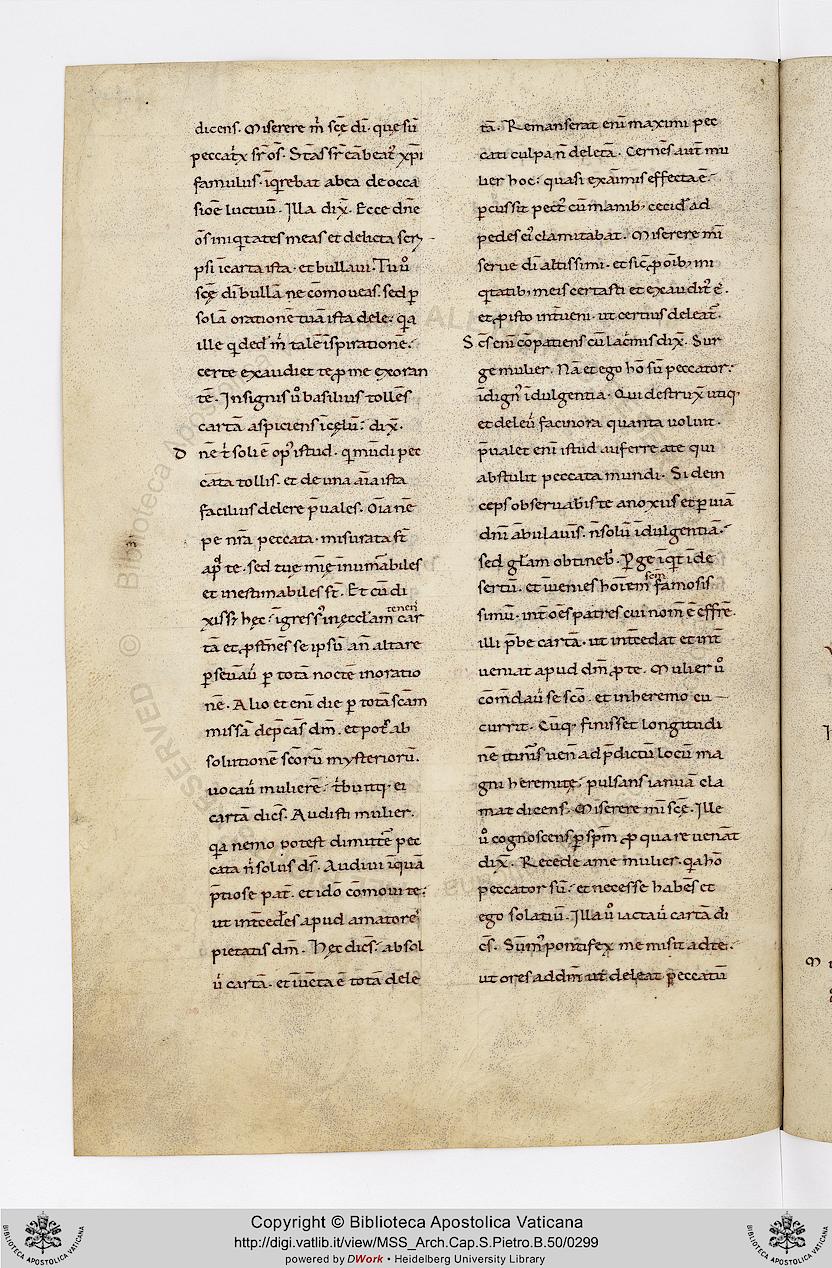 dicens. Miserere m̄ sc̄e dī. que sū
peccat͛x sr̄ ōs. Stās sr̄ eā beat᷒ xp̄i
famulus. iq̄rebat ab ea de occa
sioē luctuū. Illa dix̄. Ecce dn̄e
ōs iniq̇tates meas et delicta scri
psi ī carta ista. et bullavi. Tu ů
sc̄e dī bullā ne cōmoveas. sed ꝑ
solā orationē tuā ista dele. q̄a
ille q̇ ded̄ m̄ talē īspirationē.
certe exaudiet te ꝓ me exoran
tē. Insignis ů basilius tollēs
cartā aspiciens ī cęlū. dix̄.
D nē t̄ soli ē op᷒ istud. q̇ mūdi pec
cata tollis. et de una aīa ista
facilius delere p̄vales. Oīa nē
pe nr̄a peccata. misurata st̄
ap̄ te. sed tuę mīę inum̄abiles
et inestimabiles st̄. Et cū di
xiss᷒ hęc. igress᷒ in ęccl̄am tenen᷒ car
tā et ꝓstn̄es se ipsū an̄ altare
ꝑsevāv̄ ꝑ totā noctē in oratio
nē. Alio et enī die ꝑ totā sc̄am
missā dep̄cās dm̄. et pot᷒ ab
solutionē sc̄orū mysteriorū.
vocav̄ mulierē. t̄buitq. ei
cartā dic̄s. Audisti mulier.
q̄a nemo potest dimitt̄e pec
cata n̄ solus ds̄. Audivi iq̄uā
p̄tiose pat̄. et idō cōmovi te.
ut int̄ced̄es apud amatore᷒
pietatis dm̄. Hęc dic̄s. absol
v̄ cartā. et īvēcta ē tota dele
ta. Remanserat enī maximi pec
cati culpa n̄ deletā. Cernēs aut̄ mu
lier hoc. quasi exaīmis effecta ē.
ꝑcussit pect᷒ cū manib; cecid᷒ ad
pedes ei᷒ clamitabat. Miserere mī
serve dī altissimi. et sic̄ ꝓ oīb; ini
q̇tatib; meis certasti et exaudit᷒ ē.
et ꝓ isto int̄veni. ut certius deleat᷒.
S c̄s enī cōpatiens cū lac̄mis dix̄. Sur
ge mulier. Nā et ego hō sū peccator.
īdign᷒ īdulgentia. Qui destrux̄ utiq;
et delev̄ facinora quanta voluit.
p̄valet enī istud auferre a te qui
abstulit peccata mundi. Si dein
ceps observabis te a noxiis et ꝑ viā
dnī ābulav̄is. n̄ solū īdulgentiā.
sed gl̄am obtineb᷒. Ꝑge iq̇t ī de
sertū. et īvenies hoīem sem᷒ famosis
simū. int᷒ oēs patres cui nom̄ ē effrē.
illi p̄be cartā. ut int̄cedat et int̄
veniat apud dm̄ ꝓ te. Mulier ů
cōm̄dav̄ se sc̄o. et in heremo cu
currit. Cūq; finisset longitudi
nē itin̄is ven̄ ad p̄dictū locū ma
gni heremitę. pulsans ianuā cla
mat dicens. Miserere mī sc̄e. Ille
ů cognoscens ꝑ spm̄ ꝓ qua re venāt
dix̄. Recede a me mulier. q̄a hō
peccator sū. et necesse habēs et
ego solatiū. Illa ů iactav̄ cartā di
cēs. Sum̄᷒ pontifex me misit ad te.
ut ores ad dm̄ ut deleat peccatū
Copyright © Biblioteca Apostolica Vaticana
http://digi.vatlib.it/view/MSS_Arch.Cap.S.Pietro.B.50/0299
powered by DWork • Heidelberg University Library